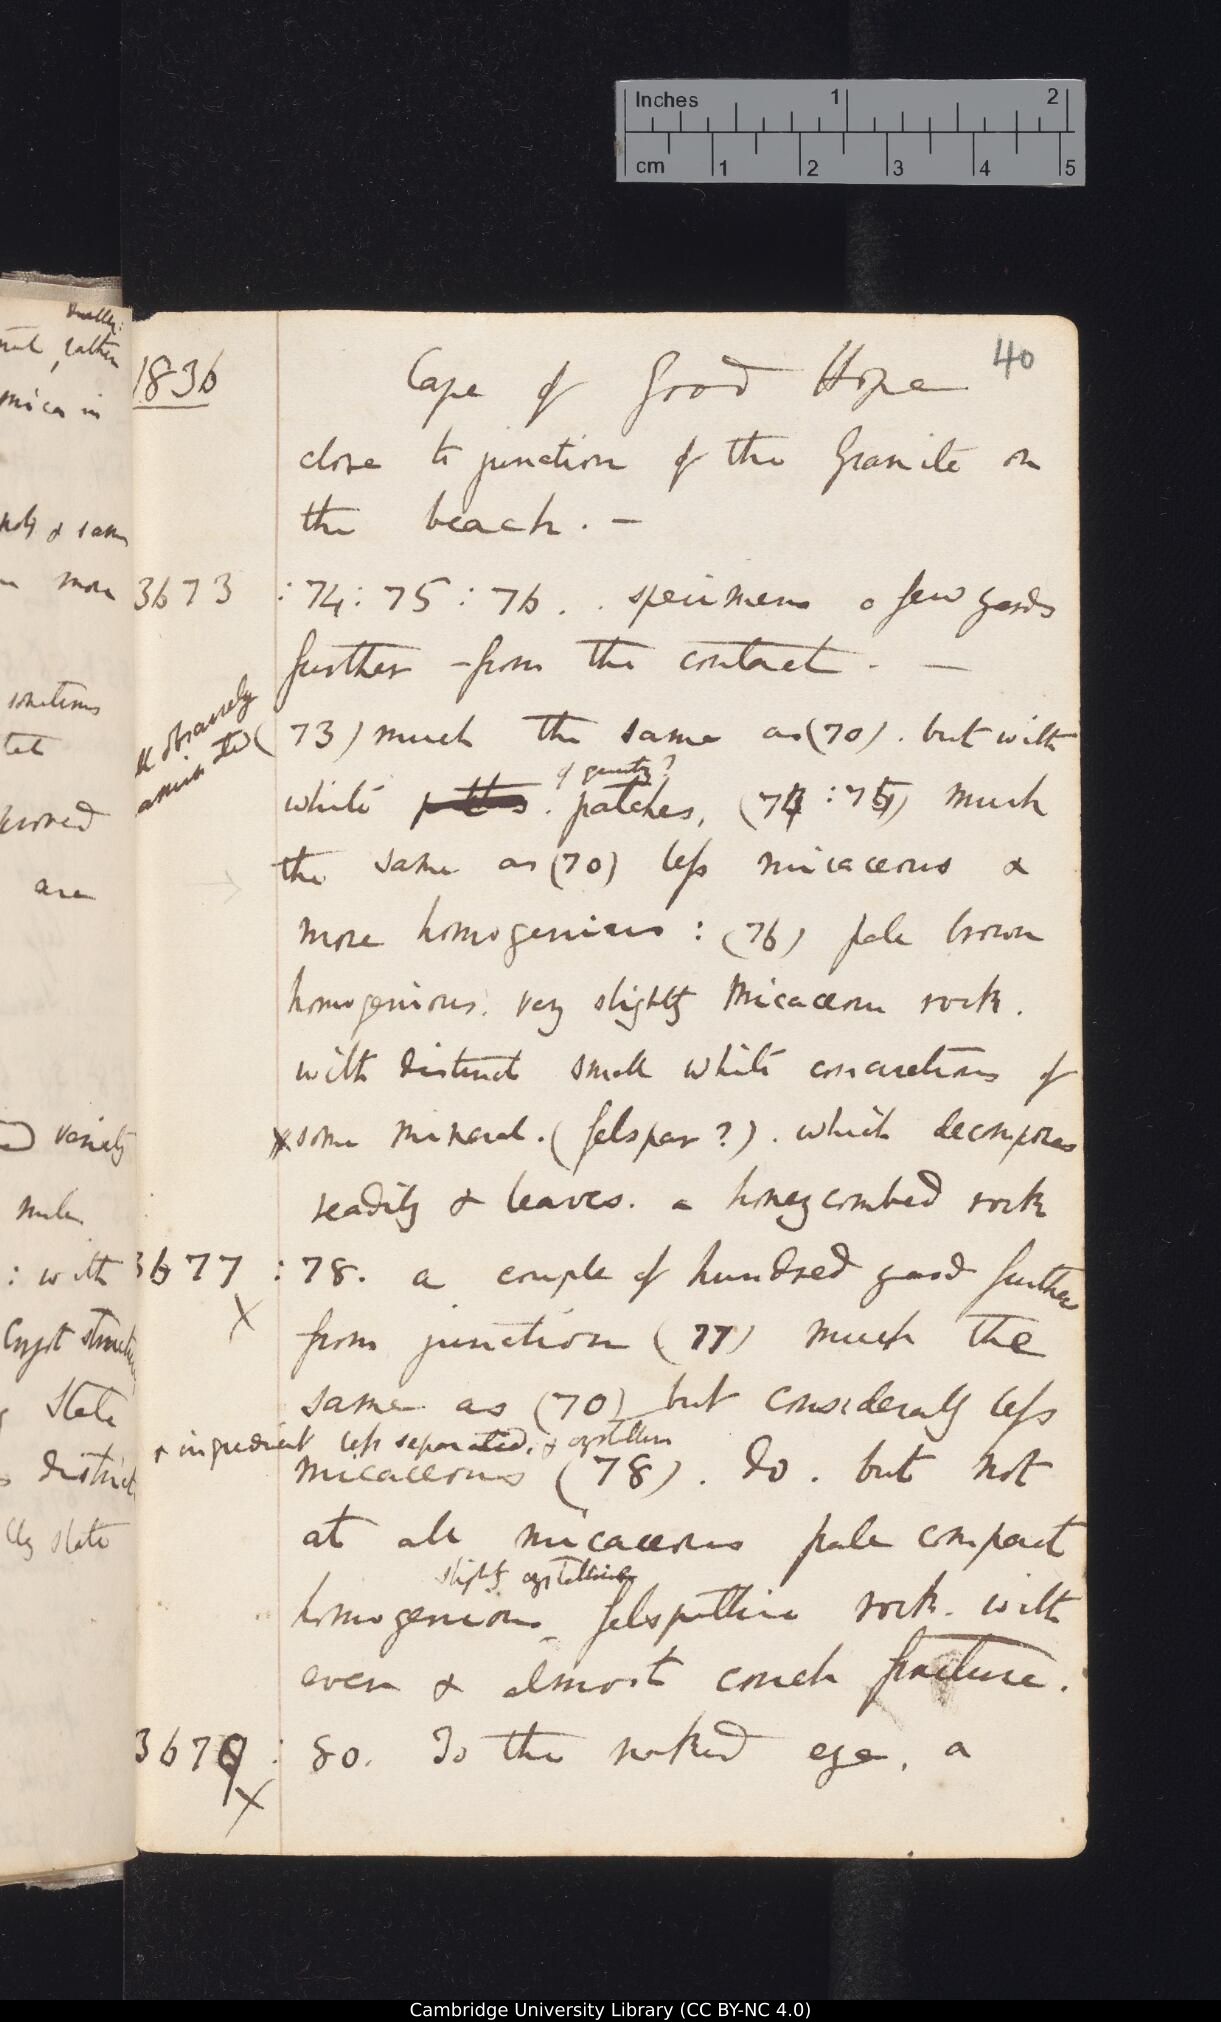 Inches 1 2
cm 1 2 3 4 5
40
1836 Cape of Good Hope
close to junction of the Granite on
the beach. —
3673 : 74: 75 : 76. . specimens a few yards
further from the contact. —
(73) much the same as (70). but with
of quartz?
white patches, (74 : 75) much
the same as (70) less micaceous &
more homogenious : (76) pale brown
homogenious. very slightly Micaceous rock.
with distinct small white concretions of
some mineral. (felspar ?). which decomposes
readily & leaves. a honeycombed rock
3677 : 78. a couple of hundred yard further
X
from junction (77) much the
same as (70) but considerably less
& ingredient less separated. & crystalline
micaceous (78). Do. but not
at all micaceous pale compact
slightly crystalline
homogenious felspathic rock. with
even & almost conch fracture.
3679 : 80. To the naked eye, a
X
rather
mica in
& same
more
sometimes
are
variety
: with
Cryst structure
State
district
state
Cambridge University Library (CC BY-NC 4.0)